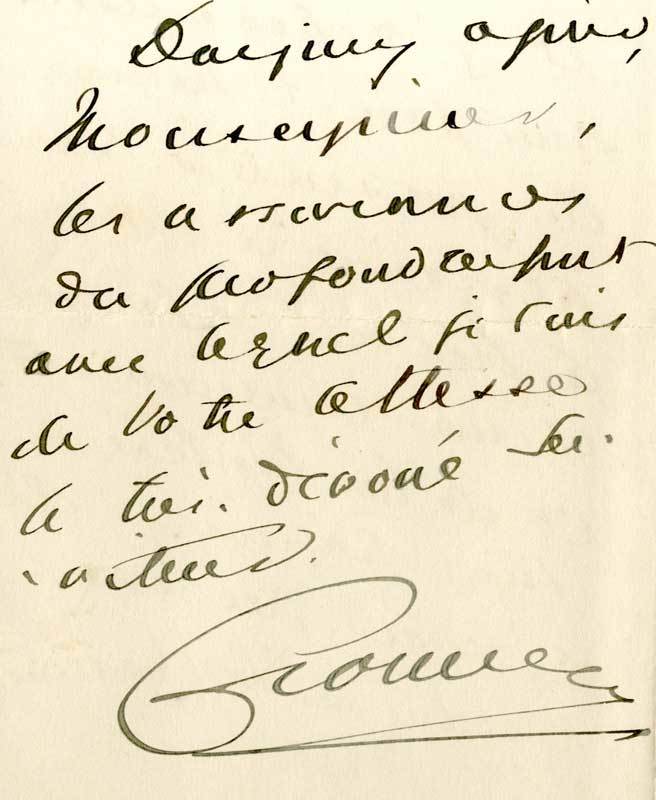 Daignez agréer,
Monseigneur,
les assurances
du profond respect
avec lequel je suis
de Votre Altesse
le très dévoué Ser-
viteur.
Cromer